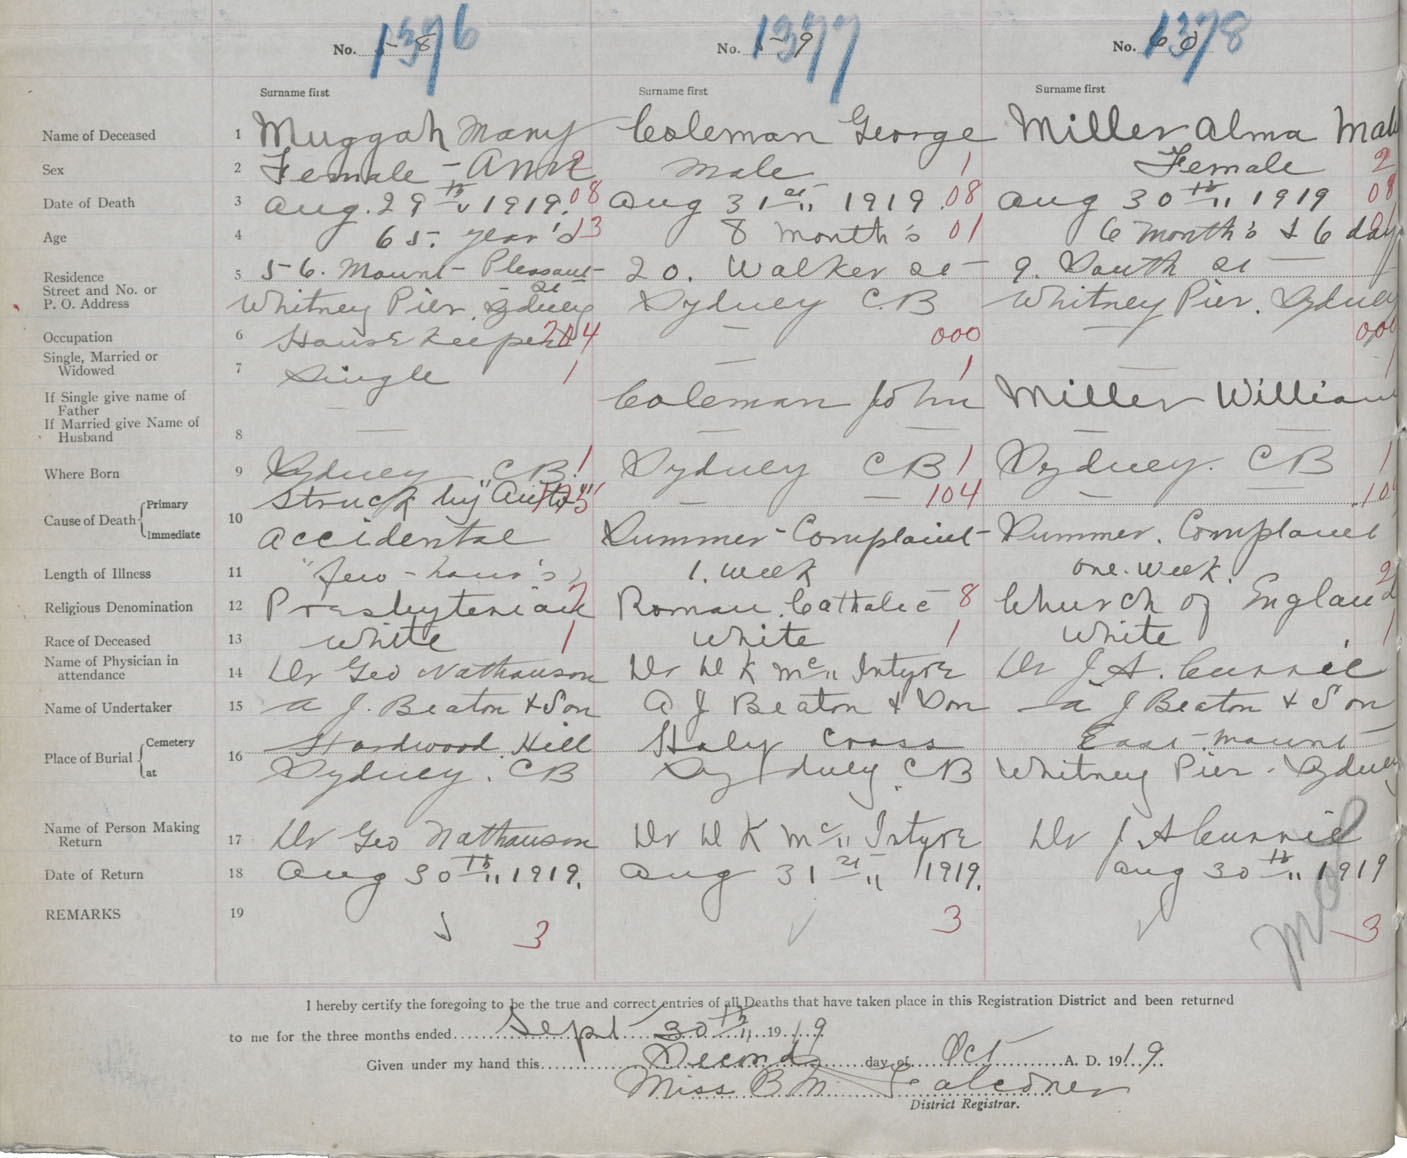 No. 58 1376 No. 59 1377 No. 60 1378
Surname first Surname first Surname first
Name of Deceased 1 Muggah Mary Coleman George Miller Alma
Sex 2 Female - Ann 2 Male 1 Female 2
Date of Death 3 Aug. 29th 1919. 08 Aug 31st 1919. 08 Aug 30th 1919 08
Age 4 65. year's 13 8 Month's 01 6 Month's & 6 day
Residence
Street and No. or
P. O. Address
5 56. Mount Pleasant St 20. Walker St 9. South St
Whitney Pier. Sydney Sydney C.B Whitney Pier. Sydney
Occupation 6 House Keeper 204 — 000 — 000
Single, Married or
Widowed
7 Single 1 — 1 — 1
If Single give name of
Father
— Coleman John Miller William
If Married give Name of
Husband
8 — — — — —
Where Born 9 Sydney CB. 1 Sydney CB 1 Sydney. CB 1
Cause of Death Primary Struck by "Auto" 175 — — 104 — 10
10
Immediate Accidental Summer Complaint Summer. Complaint
Length of Illness 11 "few - hour's 1. Week one. week.
Religious Denomination 12 Presbyterian 7 Roman Catholic 8 Church of England 2
Race of Deceased 13 White 1 White 1 White 1
Name of Physician in
attendance
14 Dr Geo Nathanson Dr D K McIntyre Dr J. A. Currie
Name of Undertaker 15 A J. Beaton & Son A J Beaton & Son A J Beaton & Son
Place of Burial Cemetery Hardwood Hill Holy Cross East mount
16
at Sydney. CB Sydney. CB Whitney Pier. Sydney
Name of Person Making
Return
17 Dr Geo Nathanson Dr D K McIntyre Dr J A Currie
Date of Return 18 Aug 30th 1919. Aug 31st 1919. Aug 30th 1919
REMARKS 19 3 3 3
I hereby certify the foregoing to be the true and correct entries of all Deaths that have taken place in this Registration District and been returned
to me for the three months ended Sept 30th 1919
Given under my hand this Second day of Oct A. D. 1919
Miss B M Falconer
District Registrar.